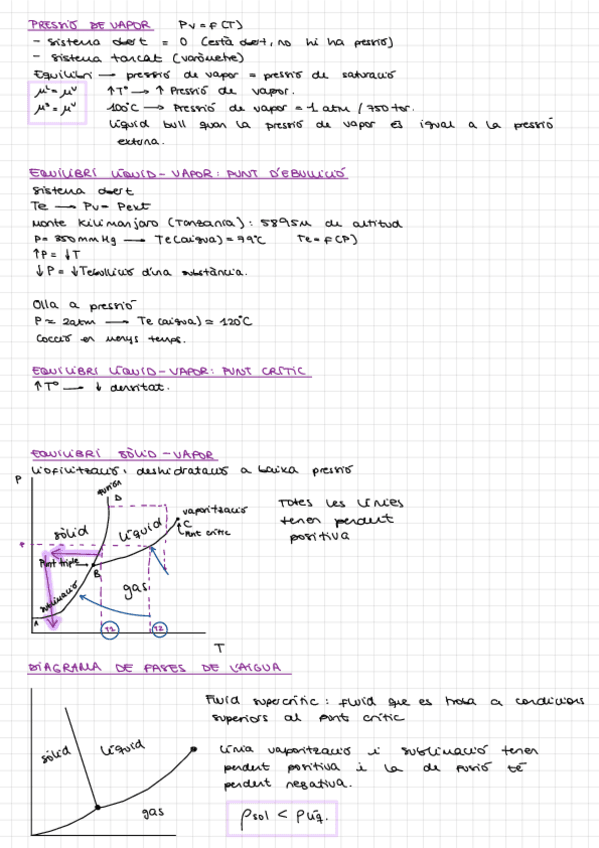 PRESSIÓ DE VAPOR Pv = f(T)
- sistema obert = 0 (està obert, no hi ha pressió)
- sistema tancat (varòmetre)
Equilibri → pressió de vapor = pressió de saturació
μᴸ = μⱽ ↑Tº → ↑ Pressió de vapor.
μˢ = μⱽ 100°C → Pressió de vapor = 1 atm / 750 tor.
Líquid bull quan la pressió de vapor és igual a la pressió
externa.
EQUILIBRI LÍQUID - VAPOR: PUNT D'EBULLICIÓ
Sistema obert
Te → Pv = Pext
Monte Kilimanjaro (Tanzania): 5895m de altitud
P = 350 mm Hg → Te (aigua) = 79°C Te = f(P)
↑P = ↓T
↓P = ↓Tebullició d'una substància.
Olla a pressió
P = 2atm → Te (aigua) = 120°C
Cocció en menys temps.
EQUILIBRI LÍQUID - VAPOR: PUNT CRÍTIC
↑Tº → ↓ densitat.
EQUILIBRI SÒLID - VAPOR
Liofilització: deshidratació a baixa pressió
P
fusión
D
vaporització
C
Punt crític
sòlid
líquid
P
Punt triple
B
sublimació
gas
A
T2
T2
T
Totes les línies
tenen pendent
positiva
DIAGRAMA DE FASES DE L'AIGUA
Fluid supercrític: fluid que es troba a condicions
superiors al punt crític
sòlid
líquid
gas
Línia vaporització i sublimació tenen
pendent positiva i la de fusió té
pendent negativa.
ρsol < ρlíq.